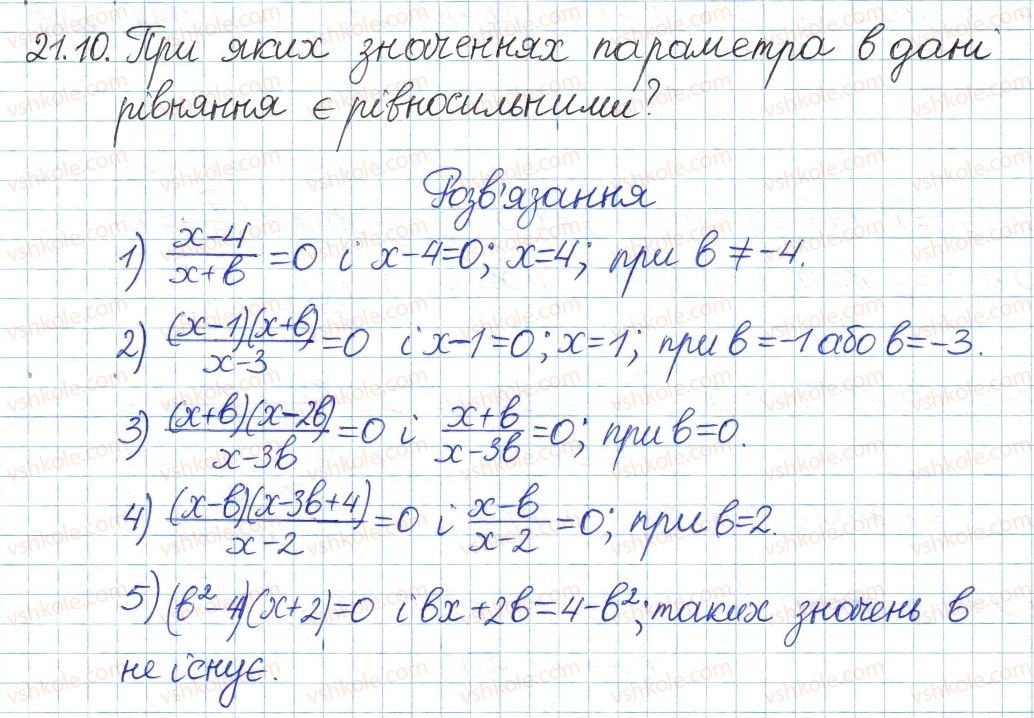 21.10. При яких значеннях параметра в дані
рівняння є рівносильними?
Розв'язання
1) (x-4)/(x+в) = 0 і x-4=0; x=4; при в ≠ -4.
2) ((x-1)(x+в))/(x-3) = 0 і x-1=0; x=1; при в=-1 або в=-3.
3) ((x+в)(x-2в))/(x-3в) = 0 і (x+в)/(x-3в) = 0; при в=0.
4) ((x-в)(x-3в+4))/(x-2) = 0 і (x-в)/(x-2) = 0; при в=2.
5) (в²-4)(x+2)=0 і вx+2в=4-в²; таких значень в
не існує.